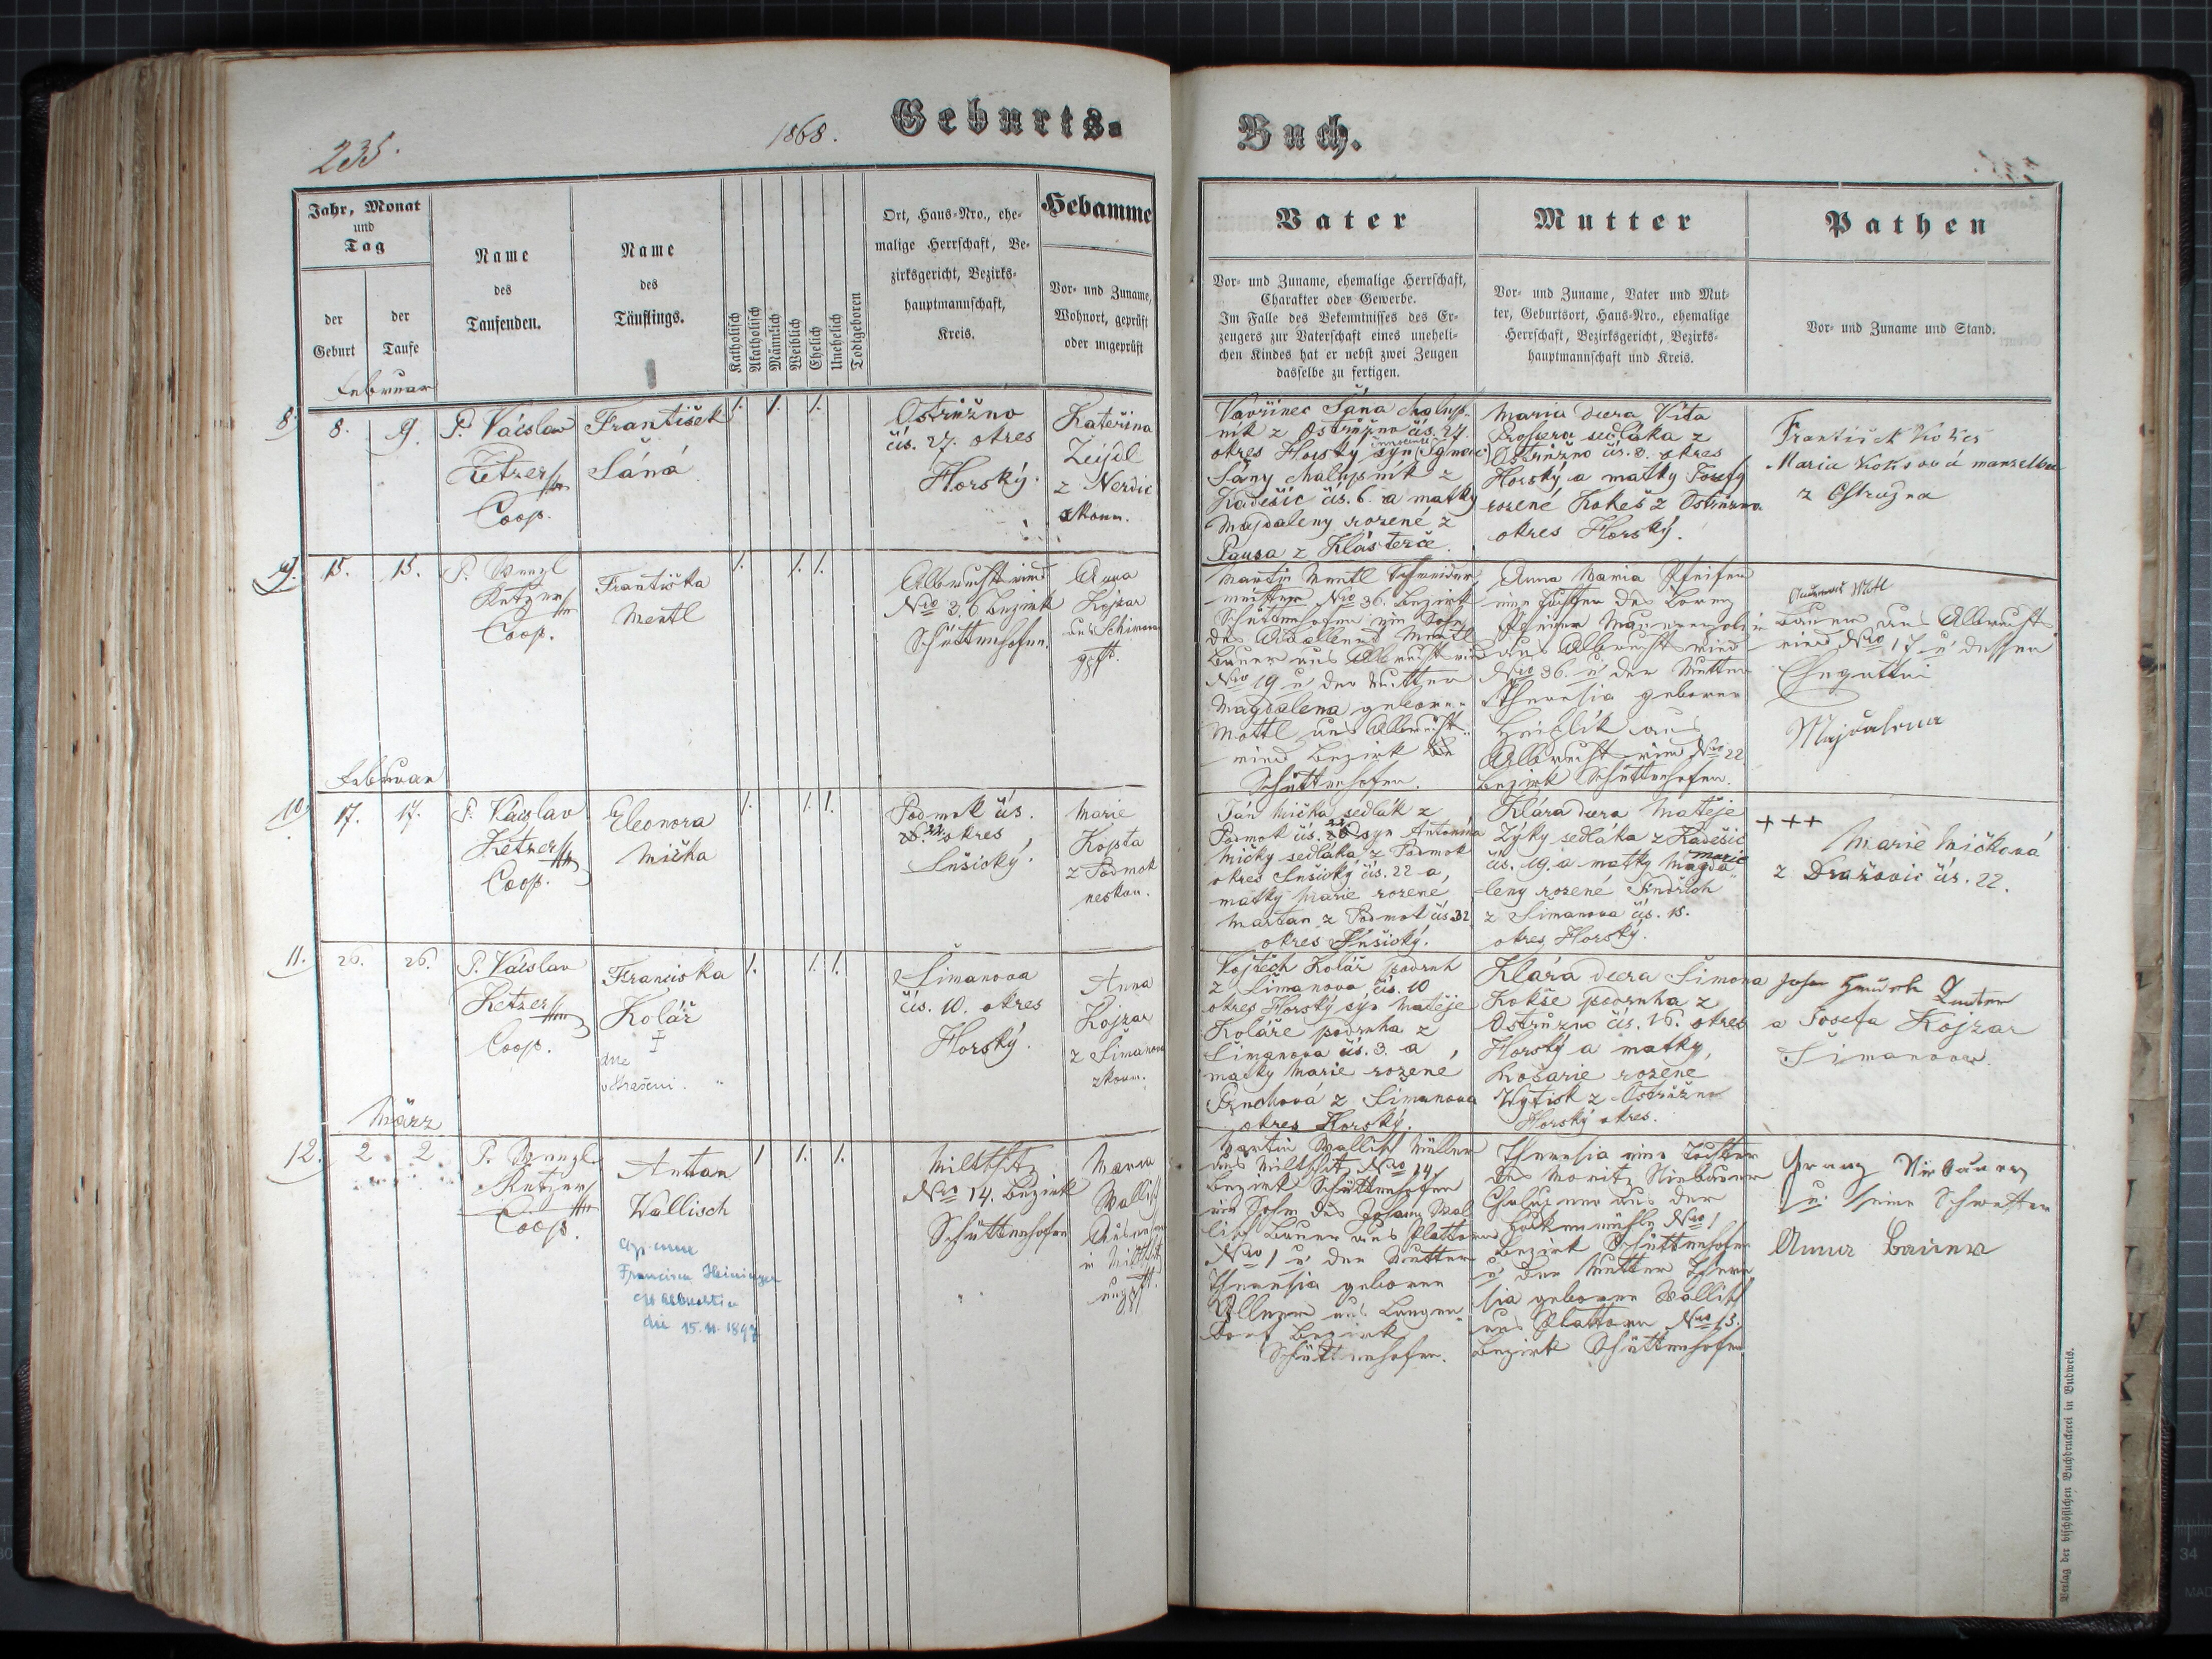 235.
1868.
Geburts=
Buch.
Jahr, Monat
und
Tag
der
Geburt
der
Taufe
Name
des
Taufenden.
Name
des
Täuflings.
Katholisch
Akatholisch
Männlich
Weiblich
Ehelich
Unehelich
Todtgeboren
Ort, Haus-Nro., ehe-
malige Herrschaft, Be-
zirksgericht, Bezirks-
hauptmannschaft,
Kreis.
Hebamme
Vor- und Zuname,
Wohnort, geprüft
oder ungeprüft
Vater
Vor- und Zuname, ehemalige Herrschaft,
Charakter oder Gewerbe.
Im Falle des Bekenntnisses des Er-
zeugers zur Vaterschaft eines uneheli-
chen Kindes hat er nebst zwei Zeugen
dasselbe zu fertigen.
Mutter
Vor- und Zuname, Vater und Mut-
ter, Geburtsort, Haus-Nro., ehemalige
Herrschaft, Bezirksgericht, Bezirks-
hauptmannschaft und Kreis.
Pathen
Vor- und Zuname und Stand.
Februar
8.
8.
9.
P. Václav
Ketzer
Coop.
František
Šáná
1. 1. 1.
Ostružno
čís. 27. okres
Horský.
Kateřina
Zeijdl
z Nerdic
zkoum.
Vavřinec Šána chalup-
ník z Ostružno čís. 27.
okres Horský syn (Ignac)
Šány chalupník z
Kadešic čís. 6. a matky
Magdaleny rozené z
Pausa z Klášterce.
Maria dcera Víta
sedláka z
Ostružno čís. 8. okres
Horský a matky Josefy
rozené Kokeš z Ostružna
okres Horský.
František Kokes
Maria Koksová manzelka
z Ostružna
9.
15.
15.
P. Wenzl
Ketzer
Coop.
Františka
Mentl
1. 1. 1.
Albrechtsried
Nro 36 Bezirk
Schüttenhofen.
Anna
Kojzar
aus Schimanau
gpft.
Martin Mentl Schneider
meister Nro 36. Bezirk
Schüttenhofen ein Sohn
des Mentl
Bauer aus Albrechtsried
Nro 19 u der Mutter
Magdalena geborene
Mottl aus Albrechts-
ried Bezirk
Schüttenhofen.
Anna Maria Pfeifer
eine Tochter des Lorenz
Pfeifer
aus Albrechtsried
Nro 36. u der Mutter
Theresia geborene
aus
Albrechtsried Nro 22
Bezirk Schüttenhofen.
Bauer aus Albrechts-
ried Nro 17 u dessen
Ehegattin
Majdalena
Februar
10.
17.
17.
P. Václav
Ketzer
Coop.
Eleonora
Mička
1. 1. 1.
Podmok čís.
22. okres
Sušický.
Marie
Kopta
z Podmok
neskou.
Ján Mička sedlák z
Podmok čís. 22 syn Antonína
Mičky sedláka z Podmok
okres Sušický čís. 22 a
matky Marie rozené
Martan z Podmok čís. 32
okres Sušický.
Klára dcera Matěje
Zýky sedláka z Kadešic
čís. 19. a matky Magda-
marie
leny rozené Jindřich
z Šimanova čís. 15.
okres Horský.
+++
Marie Mičková
z Dražovic čís. 22.
11.
26.
26.
P. Václav
Ketzer
Coop.
Franciska
Kolář
dne
1. 1. 1.
Šimanova
čís. 10. okres
Horský.
Anna
Kojzar
z Šimanova
zkoum.
Vojtěch Kolář podruh
z Šimanova čís. 10
okres Horský syn Matěje
Koláře podruha z
Šimanova čís. 3. a
matky Marie rozené
z Šimanova
okres Horský.
Klára dcera Šimona
Kokše podruha z
Ostružno čís. 16. okres
Horský a matky
Rosarie rozené
Wytisk z Ostružno
Horský okres.
a Josefa Kojzar
Šimanova
März
12.
2
2
P. Wenzl
Ketzer
Coop.
Anton
Wallisch
Francisca Heininger
die 15.11.1897
1 1. 1.
Miltschitz
Nro 14. Bezirk
Schüttenhofen
Maria
Wallisch
in Miltschitz
ungpft.
Martin Wallisch Müller
aus Miltschitz Nro 14
Bezirk Schüttenhofen
ein Sohn des Johann Wal
lisch Bauer aus Plattorn
Nro 1 u der Mutter
Theresia geborene
aus Langen-
dorf Bezirk
Schüttenhofen.
Theresia eine Tochter
des Moritz Niebauer
Chalupner aus der
Nro 1
Bezirk Schüttenhofen
u der Mutter There
sia geborene Wallisch
aus Plattorn Nro 15.
Bezirk Schüttenhofen
Franz Niebauer
u seine Schwester
Anna Bauer
Verlag der bischöflichen Buchdruckerei in Budweis.
34